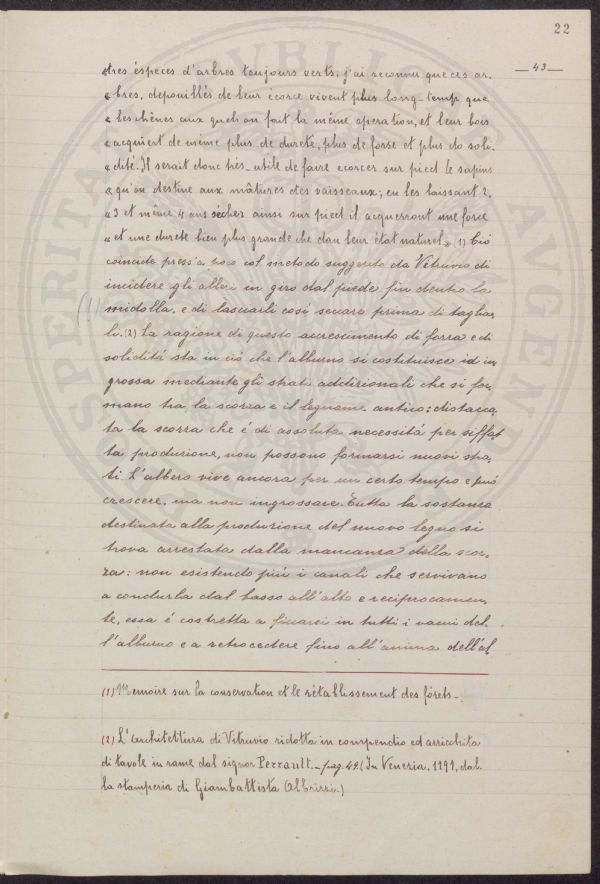 22
— 43 —
«tres éspeces d'arbres toujours verts, j'ai reconnu que ces ar-
« bres, depouillés de leur écorce vivent plus long-temp que
« les chênes aux quels on fait la même operation, et leur bois
« acquiert de même plus de dureté, plus de forse et plus do soli-
« dité. Il serait donc très-utile de faire ecorcer sur pied le sapins
« qu'on destine aux mâtures des vaisseaux; en les laissant 2,
« 3 et même 4 ans sécher ainsi sur pied il acquerront une force
« et une dureté bien plus grande che dan leur état naturel » (1) Ció
coincide press'a poco col metodo suggerito da Vitruvio di
incidere gli alberi in giro dal piede fin dentro la
midolla, e di lasciarli cosí seccare prima di tagliar-
li. (2) La ragione di questo accrescimento di forza e di
soliditá sta in ció che l'alburno si costituisce id in-
grossa mediante gli strati addizionali che si for-
mano tra la scorza e il legname antico: distacca-
ta la scorza che é di assoluta necessitá per siffat-
ta produzione, non possono formarsi nuovi stra-
ti. L'albero vive ancora per un certo tempo e puó
crescere, ma non ingrossare. Tutta la sostanza
destinata alla produzione del nuovo legno si
trova arrestata dalla mancanza della scor-
za: non esistendo piú i canali che servivano
a condurla dal basso all'alto e reciprocamen-
te, essa é costretta a ficcarsi in tutti i vacui del-
l'alburno e a retrocedere fino all'anima dell'al
(1) Memoire sur la conservation et le rétablissement des fórets-
(2) L'Architettura di Vitruvio ridotta in compendio ed arricchita
di tavole in rame dal signor Perrault.- pag. 42. (In Venezia. 1799, dal-
la stamperia di Giambattista Albrizzi.)